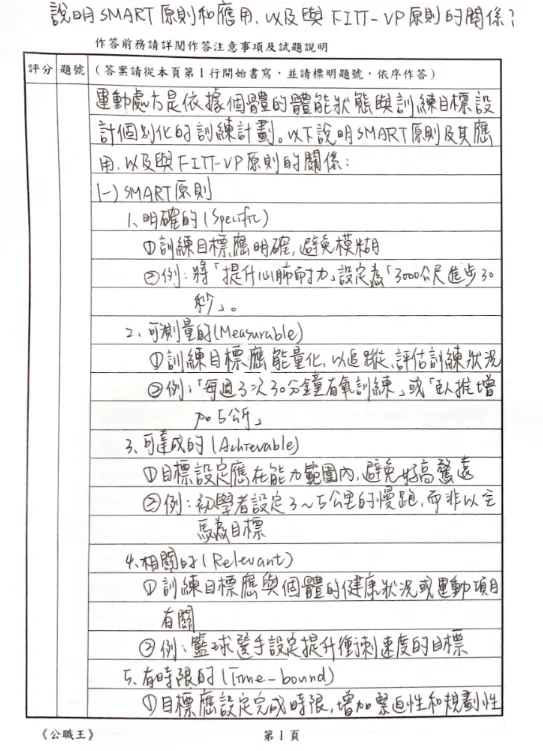 說明SMART原則和應用、以及與FITT-VP原則的關係？
作答前務請詳閱作答注意事項及試題說明
評分 題號 （答案請從本頁第1行開始書寫，並請標明題號，依序作答）
運動處方是依據個體的體能狀態與訓練目標設
計個別化的訓練計劃。以下說明SMART原則及其應
用、以及與FITT-VP原則的關係：
(一) SMART原則
1、明確的(Specific)
①訓練目標應明確，避免模糊
②例：將「提升心肺耐力」設定為「3000公尺進步30
秒」。
2、可測量的(Measurable)
①訓練目標應能量化，以追蹤、評估訓練狀況
②例：「每週3次30分鐘有氧訓練」或「臥推增
加5公斤」
3、可達成的(Achievable)
①目標設定應在能力範圍內，避免好高騖遠
②例：初學者設定3～5公里的慢跑，而非以全
馬為目標
4、相關的(Relevant)
①訓練目標應與個體的健康狀況或運動項目
有關
②例：籃球選手設定提升衝刺速度的目標
5、有時限的(Time-bound)
①目標應設定完成時限，增加緊迫性和規劃性
《公職王》 第1頁